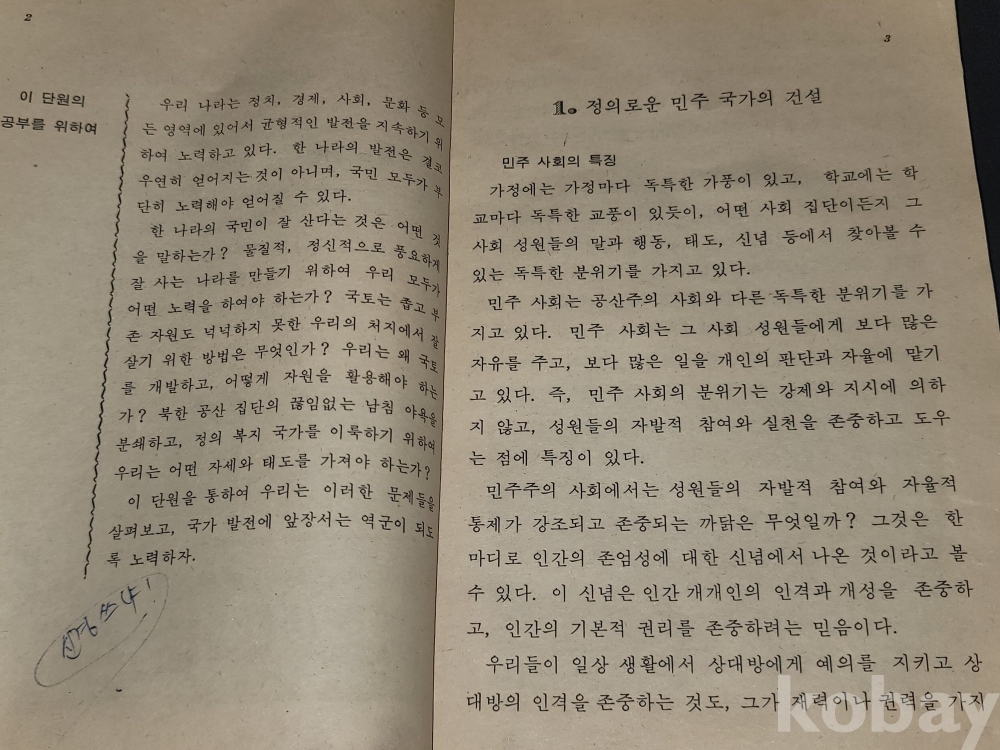 2
이 단원의
공부를 위하여
우리 나라는 정치, 경제, 사회, 문화 등 모
든 영역에 있어서 균형적인 발전을 지속하기 위
하여 노력하고 있다. 한 나라의 발전은 결코
우연히 얻어지는 것이 아니며, 국민 모두가 부
단히 노력해야 얻어질 수 있다.
한 나라의 국민이 잘 산다는 것은 어떤 것
을 말하는가? 물질적, 정신적으로 풍요하게
잘 사는 나라를 만들기 위하여 우리 모두가
어떤 노력을 하여야 하는가? 국토는 좁고 부
존 자원도 넉넉하지 못한 우리의 처지에서 잘
살기 위한 방법은 무엇인가? 우리는 왜 국토
를 개발하고, 어떻게 자원을 활용해야 하는
가? 북한 공산 집단의 끊임없는 남침 야욕을
분쇄하고, 정의 복지 국가를 이룩하기 위하여
우리는 어떤 자세와 태도를 가져야 하는가?
이 단원을 통하여 우리는 이러한 문제들을
살펴보고, 국가 발전에 앞장서는 역군이 되도
록 노력하자.
3
1. 정의로운 민주 국가의 건설
민주 사회의 특징
가정에는 가정마다 독특한 가풍이 있고, 학교에는 학
교마다 독특한 교풍이 있듯이, 어떤 사회 집단이든지 그
사회 성원들의 말과 행동, 태도, 신념 등에서 찾아볼 수
있는 독특한 분위기를 가지고 있다.
민주 사회는 공산주의 사회와 다른 독특한 분위기를 가
지고 있다. 민주 사회는 그 사회 성원들에게 보다 많은
자유를 주고, 보다 많은 일을 개인의 판단과 자율에 맡기
고 있다. 즉, 민주 사회의 분위기는 강제와 지시에 의하
지 않고, 성원들의 자발적 참여와 실천을 존중하고 도우
는 점에 특징이 있다.
민주주의 사회에서는 성원들의 자발적 참여와 자율적
통제가 강조되고 존중되는 까닭은 무엇일까? 그것은 한
마디로 인간의 존엄성에 대한 신념에서 나온 것이라고 볼
수 있다. 이 신념은 인간 개개인의 인격과 개성을 존중하
고, 인간의 기본적 권리를 존중하려는 믿음이다.
우리들이 일상 생활에서 상대방에게 예의를 지키고 상
대방의 인격을 존중하는 것도, 그가 재력이나 권력을 가지
kobay